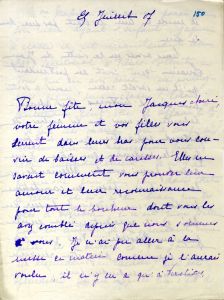 25 Juillet 07
150
Bonne fête, mon Jacques chéri,
votre femme et vos filles vous
serrent dans leurs bras pour vous cou-
vrir de baisers et de caresses. Elles ne
savent comment vous prouver leur
amour et leur reconnaissance
pour tout le bonheur dont vous les
avez comblé depuis que nous sommes
à vous. Je n'ai pu aller à la
messe ce matin comme je l'aurai
voulu, il n'y en a qu'à